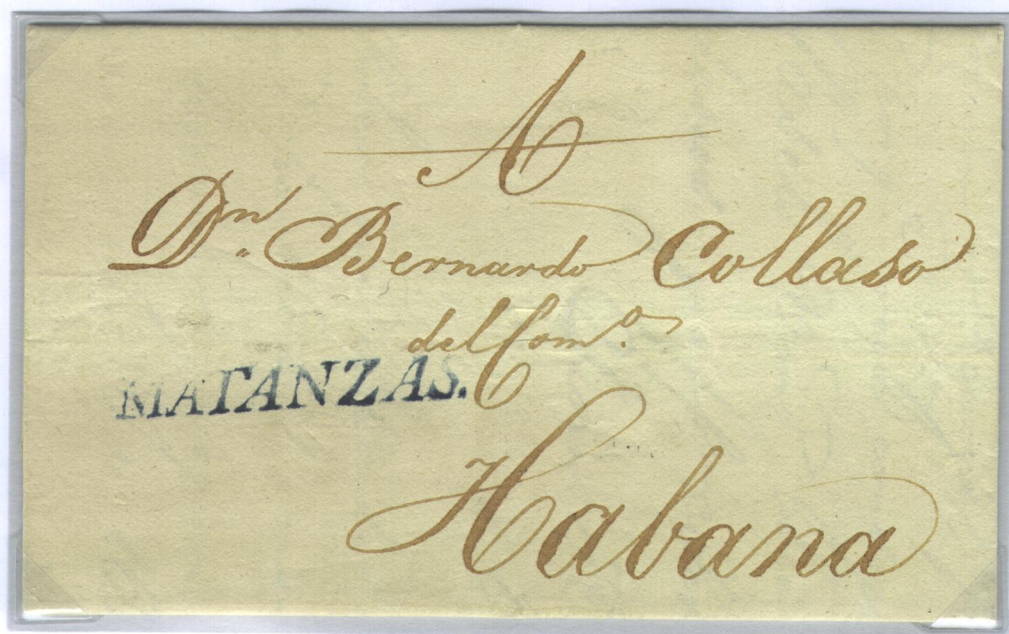 A
Dn. Bernardo Collaso
del Como.
MATANZAS.
Habana